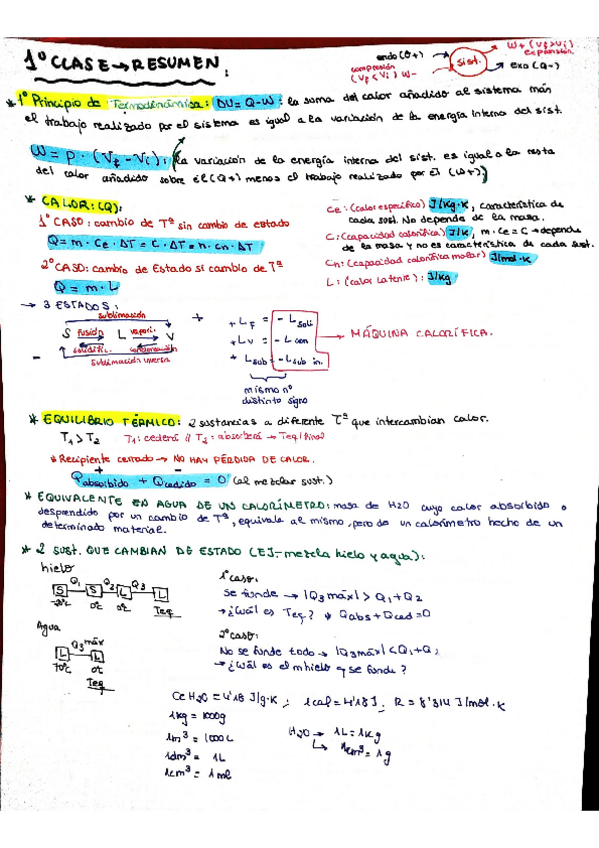 1º CLASE → RESUMEN:
endo (Q+)
compresión
(Vf < Vi) W-
sist.
W+ (Vf > Vi)
expansión
exo (Q-)
* 1º Principio de Termodinámica: DU = Q - W: la suma del calor añadido al sistema más
el trabajo realizado por el sistema es igual a la variación de la energía interna del sist.
W = p · (Vf - Vi): (la variación de la energía interna del sist. es igual a la resta
del calor añadido sobre él (Q+) menos el trabajo realizado por él (W+))
* CALOR: (Q):
1º CASO: cambio de Tª sin cambio de estado
Q = m · Ce · ΔT = C · ΔT = n · cn · ΔT
2º CASO: cambio de Estado si cambio de Tª
Q = m · L
Ce: (calor específico) J/kg·K, característica de
cada sust. No depende de la masa.
C: (capacidad calorífica) J/K, m · Ce = C → depende
de la masa y no es característica de cada sust.
Cn: (capacidad calorífica molar) J/mol·K
L: (calor latente): J/kg
→ 3 ESTADOS:
sublimación
S fusión L vapori. V
solidific. condensación
sublimación inversa
+
-
+ Lf = - L soli
+ Lv = - L con
+ L sub = - L sub in.
→ MÁQUINA CALORÍFICA.
mismo nº
distinto signo
* EQUILIBRIO TÉRMICO: 2 sustancias a diferente Tª que intercambian calor.
T1 > T2 T1: cederá // T2: absorberá → Teq/final
* Recipiente cerrado → NO HAY PÉRDIDA DE CALOR.
+ -
Qabsorbido + Qcedido = 0 (al mezclar sust.)
* EQUIVALENTE EN AGUA DE UN CALORÍMETRO: masa de H2O cuyo calor absorbido o
desprendido por un cambio de Tª, equivale al mismo, pero de un calorímetro hecho de un
determinado material.
* 2 SUST. QUE CAMBIAN DE ESTADO (EJ.- mezcla hielo y agua):
hielo
Q1 Q2 Q3
S S L L
0ºc 0ºc Teq
Agua
Q3 máx
L L
70ºc 0ºc
Teq
1º caso:
Se funde → |Q3 máx| > Q1 + Q2
→ ¿Cuál es Teq? Qabs + Qced = 0
2º caso:
No se funde todo → |Q3 máx| < Q1 + Q2
→ ¿Cuál es el mhielo q se funde?
Ce H2O = 4'18 J/g·K ; 1 cal = 4'18 J ; R = 8'314 J/mol·K
1kg = 1000g
1m³ = 1000 L
1dm³ = 1L
1cm³ = 1 ml
H2O → 1L = 1Kg
↳ 1cm³ = 1g